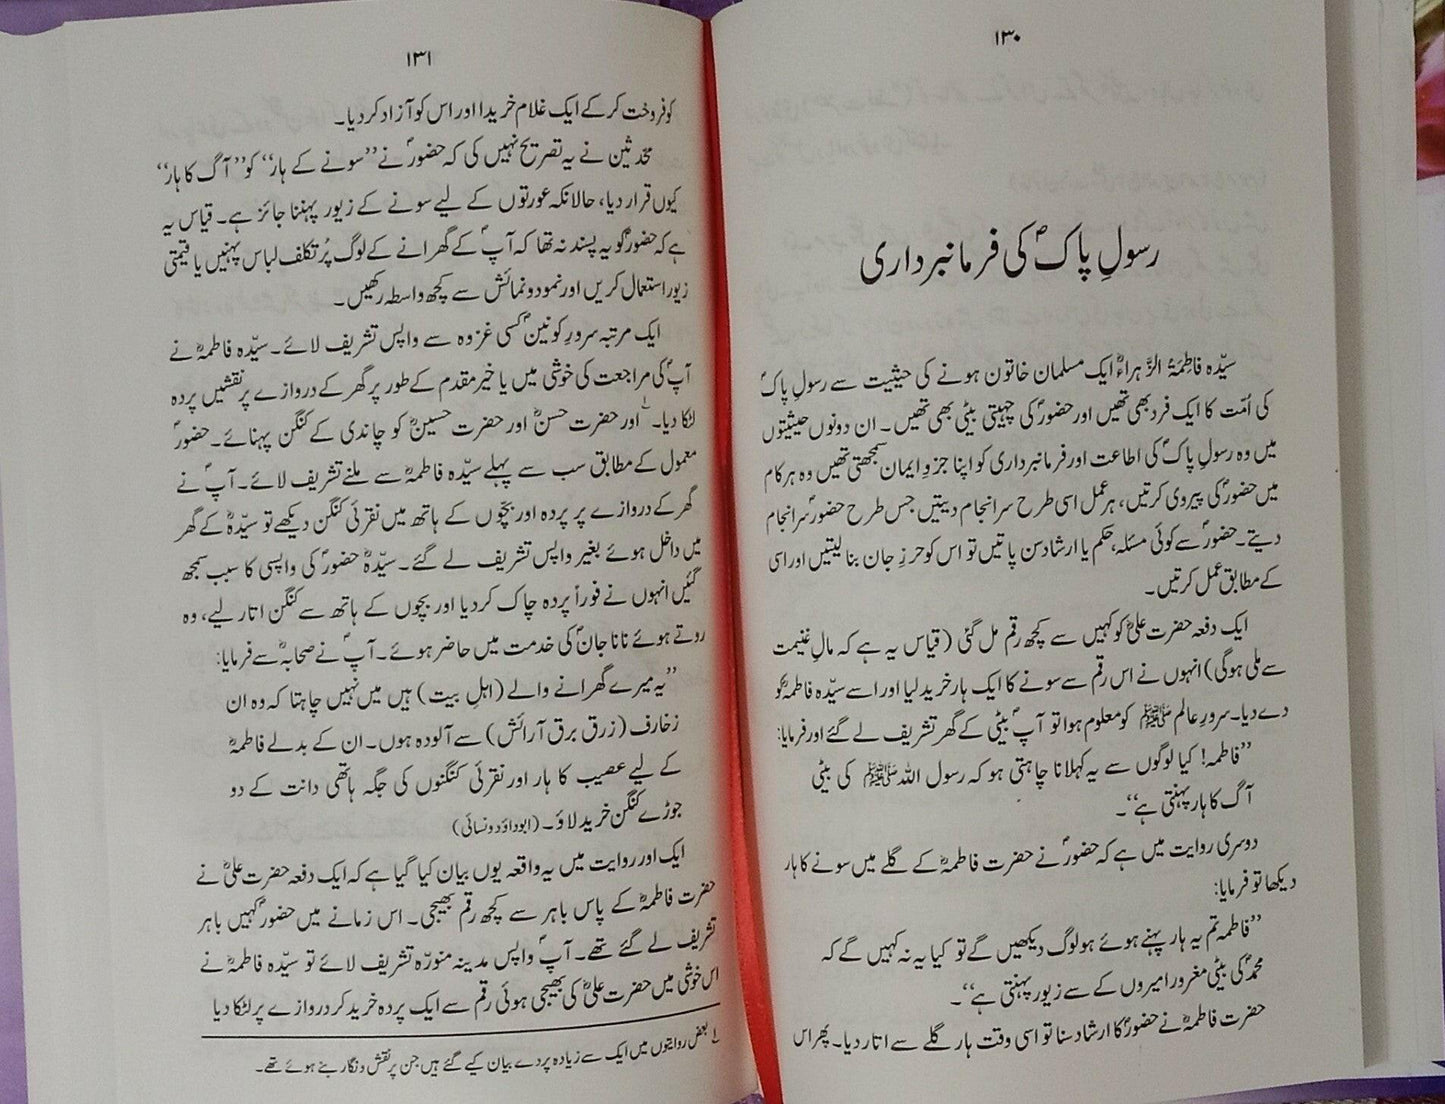 ۱۳۰
رسولِ پاکؐ کی فرمانبرداری
سیّدہ فاطِمَۃُ الزَّہراءؓ ایک مسلمان خاتون ہونے کی حیثیت سے رسولِ پاکؐ
کی اُمّت کا ایک فرد بھی تھیں اور حضورؐ کی چہیتی بیٹی بھی تھیں۔ ان دونوں حیثیتوں
میں وہ رسولِ پاکؐ کی اطاعت اور فرمانبرداری کو اپنا جزوِ ایمان سمجھتی تھیں وہ ہر کام
میں حضورؐ کی پیروی کرتیں، ہر عمل اسی طرح سرانجام دیتیں جس طرح حضورؐ سرانجام
دیتے۔ حضورؐ سے کوئی مسئلہ، حکم یا ارشاد سن پاتیں تو اس کو حرزِ جان بنا لیتیں اور اسی
کے مطابق عمل کرتیں۔
ایک دفعہ حضرت علیؓ کو کہیں سے کچھ رقم مل گئی (قیاس یہ ہے کہ مالِ غنیمت
سے ملی ہوگی) انہوں نے اس رقم سے سونے کا ایک ہار خرید لیا اور اسے سیّدہ فاطمہؓ کو
دے دیا۔ سرورِ عالم ﷺ کو معلوم ہوا تو آپؐ بیٹی کے گھر تشریف لے گئے اور فرمایا:
”فاطمہ! کیا لوگوں سے یہ کہلانا چاہتی ہو کہ رسول اللہ ﷺ کی بیٹی
آگ کا ہار پہنتی ہے“۔
دوسری روایت میں ہے کہ حضورؐ نے حضرت فاطمہؓ کے گلے میں سونے کا ہار
دیکھا تو فرمایا:
”فاطمہ تم یہ ہار پہنے ہوئے ہو لوگ دیکھیں گے تو کیا یہ نہ کہیں گے کہ
محمدؐ کی بیٹی مغرور امیروں کے سے زیور پہنتی ہے“۔
حضرت فاطمہؓ نے حضورؐ کا ارشاد سنا تو اسی وقت ہار گلے سے اتار دیا۔ پھر اس
۱۳۱
کو فروخت کر کے ایک غلام خریدا اور اس کو آزاد کر دیا۔
محدّثین نے یہ تصریح نہیں کی کہ حضورؐ نے ”سونے کے ہار“ کو ”آگ کا ہار“
کیوں قرار دیا، حالانکہ عورتوں کے لیے سونے کے زیور پہننا جائز ہے۔ قیاس یہ
ہے کہ حضورؐ کو یہ پسند نہ تھا کہ آپؐ کے گھرانے کے لوگ پُرتکلف لباس پہنیں یا قیمتی
زیور استعمال کریں اور نمود و نمائش سے کچھ واسطہ رکھیں۔
ایک مرتبہ سرورِ کونینؐ کسی غزوہ سے واپس تشریف لائے۔ سیّدہ فاطمہؓ نے
آپؐ کی مراجعت کی خوشی میں یا خیر مقدم کے طور پر گھر کے دروازے پر نقشیں پردہ
لٹکا دیا۔۱؎ اور حضرت حسنؓ اور حضرت حسینؓ کو چاندی کے کنگن پہنائے۔ حضورؐ
معمول کے مطابق سب سے پہلے سیّدہ فاطمہؓ سے ملنے تشریف لائے۔ آپؐ نے
گھر کے دروازے پر پردہ اور بچّوں کے ہاتھ میں نقرئی کنگن دیکھے تو سیّدہؓ کے گھر
میں داخل ہوئے بغیر واپس تشریف لے گئے۔ سیّدہؓ حضورؐ کی واپسی کا سبب سمجھ
گئیں انہوں نے فوراً پردہ چاک کر دیا اور بچوں کے ہاتھ سے کنگن اتار لیے، وہ
روتے ہوئے نانا جانؐ کی خدمت میں حاضر ہوئے۔ آپؐ نے صحابہؓ سے فرمایا:
”یہ میرے گھرانے والے (اہلِ بیت) ہیں میں نہیں چاہتا کہ وہ ان
زخارف (زرق برق آرائش) سے آلودہ ہوں۔ ان کے بدلے فاطمہؓ
کے لیے عصیب کا ہار اور نقرئی کنگنوں کی جگہ ہاتھی دانت کے دو
جوڑے کنگن خرید لاؤ۔ (ابوداؤد و نسائی)
ایک اور روایت میں یہ واقعہ یوں بیان کیا گیا ہے کہ ایک دفعہ حضرت علیؓ نے
حضرت فاطمہؓ کے پاس باہر سے کچھ رقم بھیجی۔ اس زمانے میں حضورؐ کہیں باہر
تشریف لے گئے تھے۔ آپؐ واپس مدینہ منورّہ تشریف لائے تو سیّدہ فاطمہؓ نے
اس خوشی میں حضرت علیؓ کی بھیجی ہوئی رقم سے ایک پردہ خرید کر دروازے پر لٹکا دیا
۱؎ بعض روایتوں میں ایک سے زیادہ پردے بیان کیے گئے ہیں جن پر نقش و نگار بنے ہوئے تھے۔